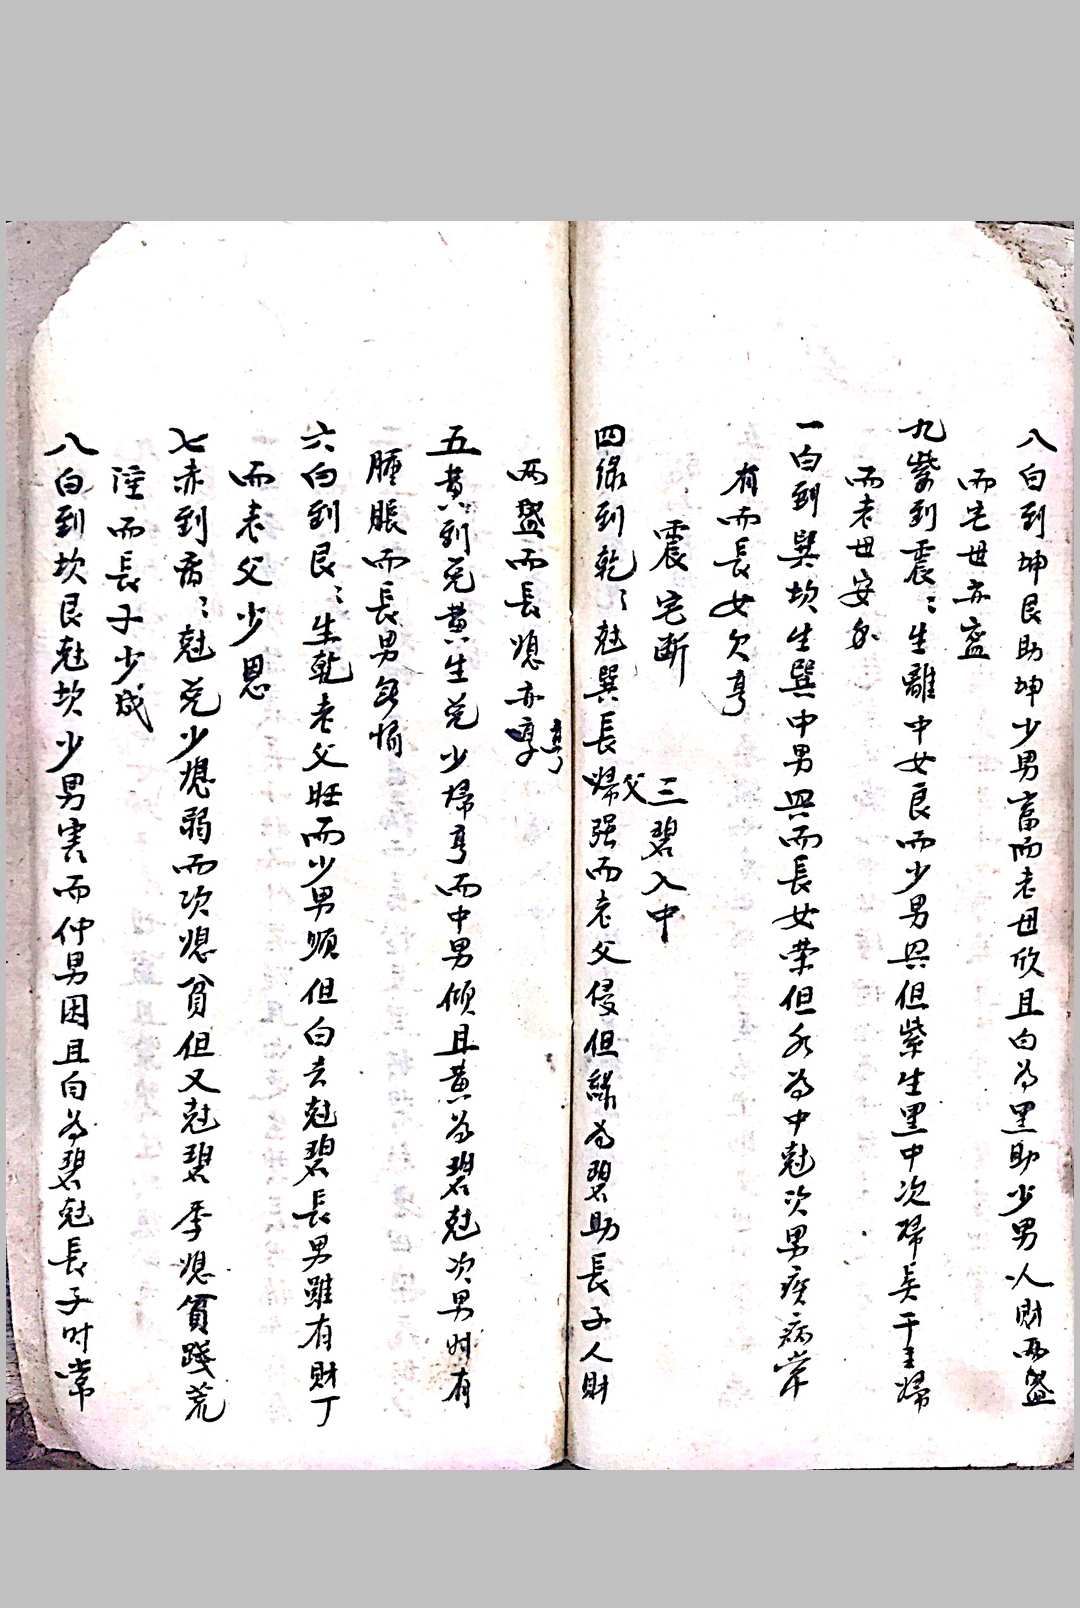 八白到坤艮助坤少男富而老母欣且白為黑助少男人財兩盛
而宅母亦盛
九紫到震〻生離中女良而少男興但紫生黑中次婦美于主婦
而老母安
一白到巽坎生巽中男興而長女荣但水為中尅次男疾病常
有而長女欠亨
震宅断
三碧入中
四緑到乾〻尅巽長婦强而老父侵但緑為碧助長子人財
父
两盛而長媳亦
亨
五黄到兑黄生兑少婦亨而中男傾且黄為碧尅次男时有
腫脹而長男
六白到艮〻生乾老父旺而少男順但白去尅碧長男雖有財丁
而老父少恩
七赤到离〻尅兑少媳弱而次媳貧但又尅碧季媳貧賤荒
淫而長子少成
八白到坎艮尅坎少男害而仲男困且白為碧尅長子时常